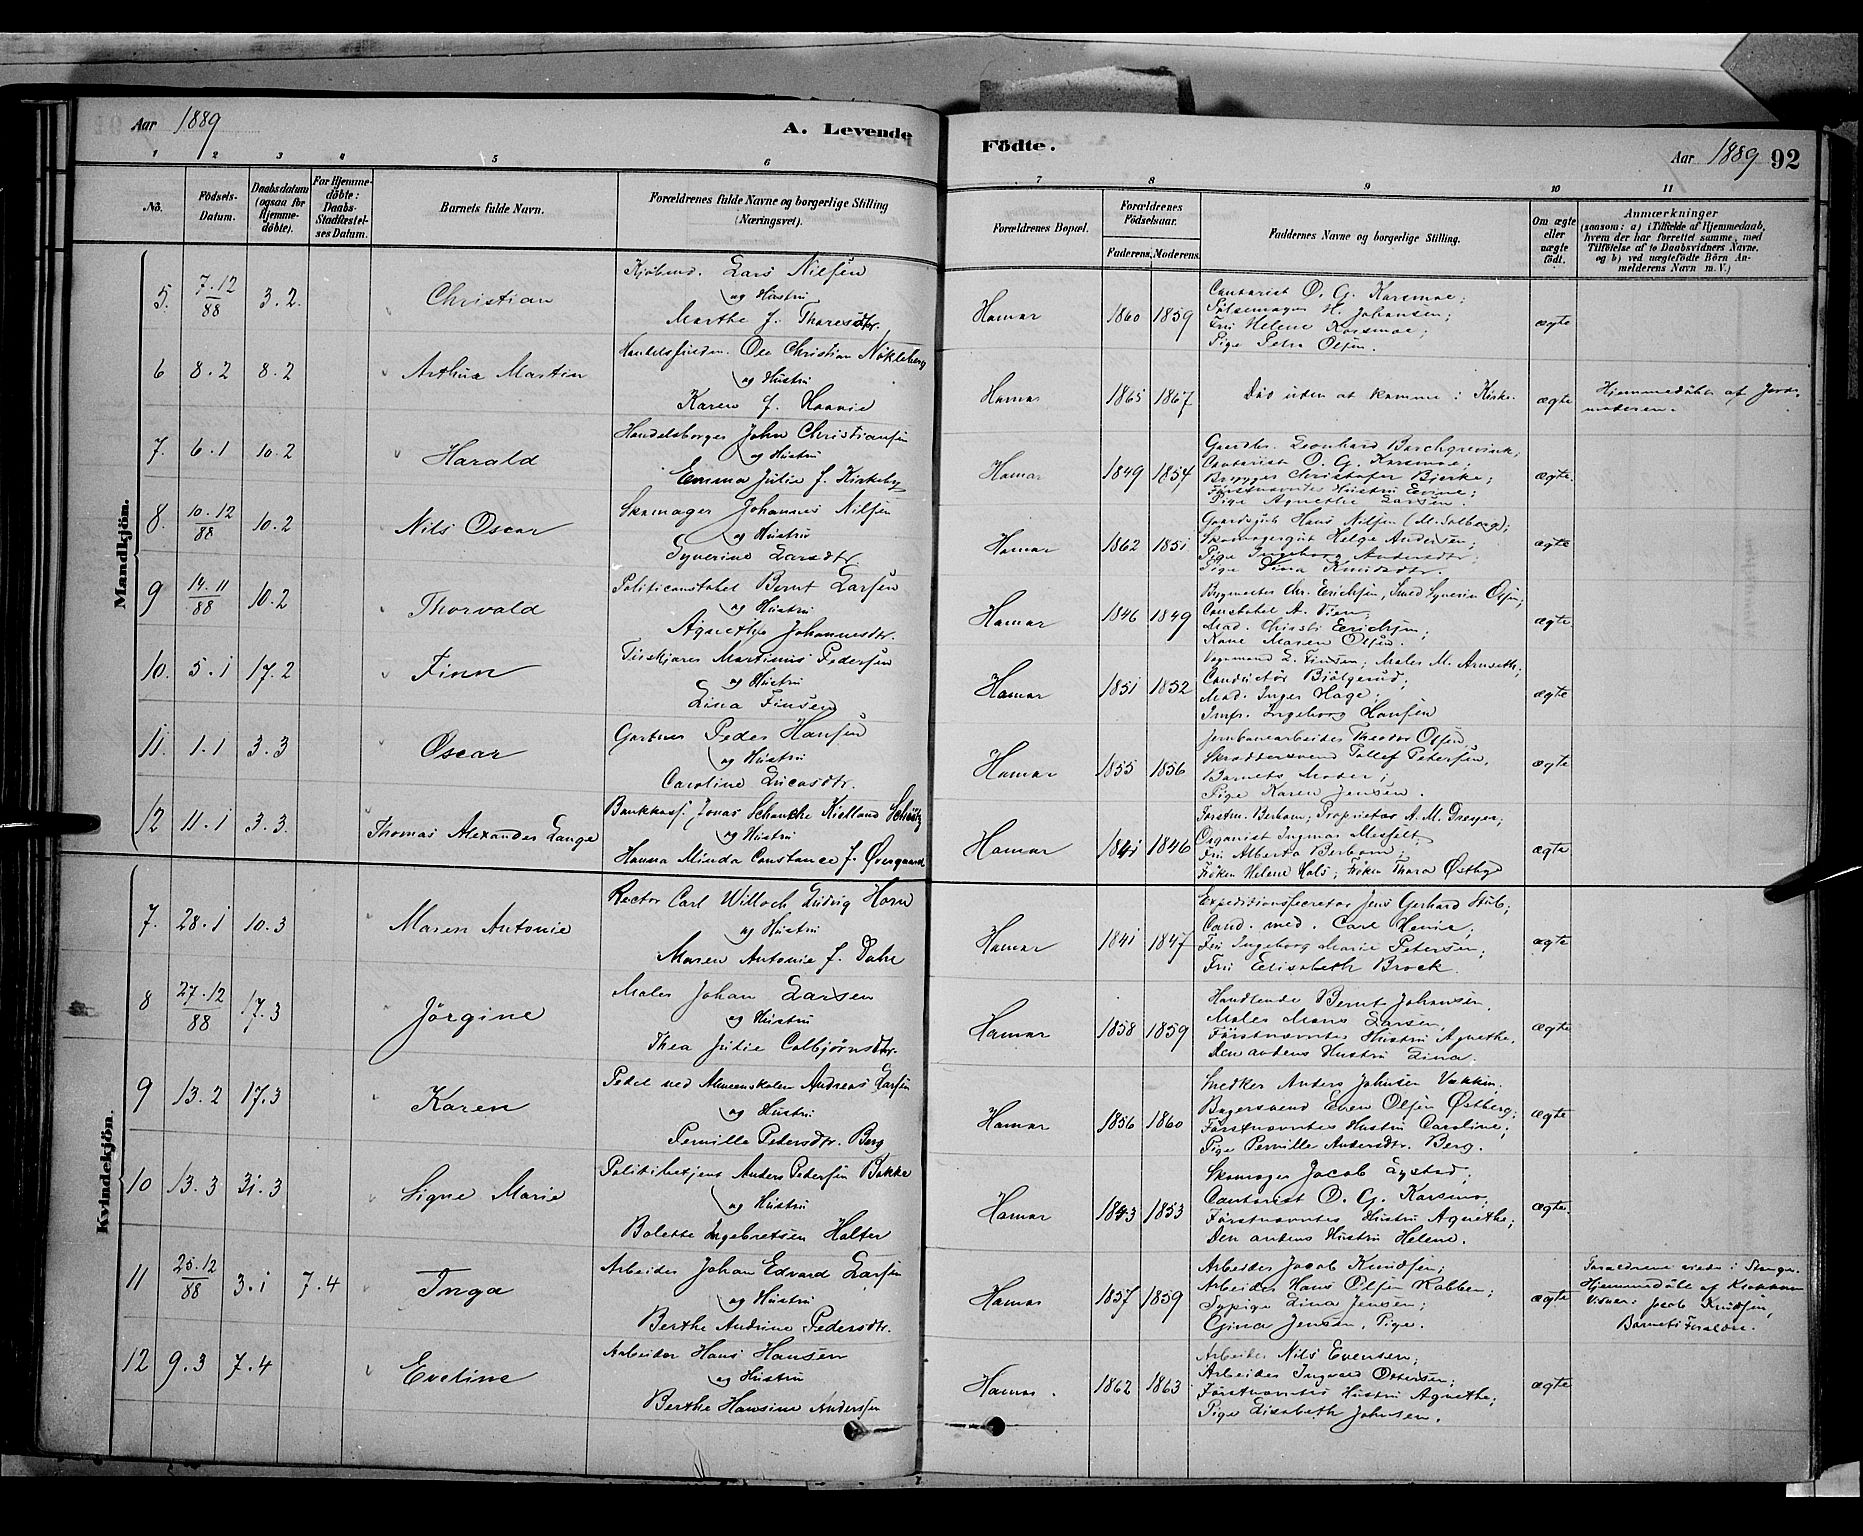 Aar 1889
A. Levende
Födte.
Aar 1889 92
1 2 3 4 5 6 7 8 9 10 11
No.
Födsels-Datum.
Daabsdatum (ogsaa for Hjemme-döbte).
For Hjemme-döbte: Daabs-Stadfæstel-ses Datum.
Barnets fulde Navn.
Forældrenes fulde Navne og borgerlige Stilling (Næringsvei).
Forældrenes Bopæl.
Forældrenes Födselsaar.
Faderens. Moderens.
Faddernes Navne og borgerlige Stilling.
Om ægte eller uægte födt.
Anmærkninger
(saasom: a) i Tilfælde af Hjemmedaab, hvem der har forrettet samme, med Tilföielse af to Daabsvidners Navne, og b) ved uægtefödte Börn An-melderens Navn m. V.)
Mandkjön.
5. 7.12/88 3.2. Christian
Kjöbmd. Lars Nilsen
og Hustru
Marthe f. Thoresdtr.
Hamar 1860 1859
Cantorist O. G. Karsmoe;
Pölsemager H. Johansen;
Fru Helene Korsmoe;
Pige Petra Olsen.
ægte
6 8.2 8.2 Arthur Martin
Ole Christian Nökleberg
og Hustru
Karen f. Haavie
Hamar 1865 1867
Död uden at komme i Kirke.
ægte
Hjemmedöbt af Jord-
moderen.
7. 6.1 10.2 Harald
Handelsborger John Christiansen
og Hustru
Emma Julie f. Kirkeby
Hamar 1849 1854
Gaardbr. Leonhard Borchgrevink;
Cantorist O. G. Karsmoe;
Brygger Christofer Bjerke;
Förstnævntes Hustru Emma;
Pige Agnethe Larsen.
ægte.
8. 10.12/88 10.2 Nils Oscar
Skomager Johannes Nilsen
og Hustru
Syverine Larsdtr
Hamar 1862 1851
Gaardsgut Hans Nilsen (M. Solberg);
Skomagergut Helge Andersen;
Pige Ingeborg Andersdtr.
Pige Dina Knudsdtr.
ægte
9 14.11/88 10.2 Thorvald
Politiconstabel Bernt Larsen
og Hustru
Agnethe Johannesdtr.
Hamar 1846 1849
Bygmester Chr. Erichsen, Smed Syverin Olsen;
Constabel A. Vien;
Mad. Christi Erichsen;
Kone Maren Olsen.
ægte
10. 5.1 17.2 Finn
Martinus Pedersen
og Hustru
Lina Finsen
Hamar 1851 1852
Vognmand L. Finsen; Maler M. Arneseth;
Conductör Bjölgerud;
Mad. Inger Hage;
Jmfr. Ingeborg Hansen
ægte
11. 1.1 3.3 Oscar
Gartner Peder Hansen
og Hustru
Caroline Lucasdtr.
Hamar 1855 1856
Jernbanearbeider Theodor Olsen,
Skræddersvend Tollef Petersen,
Barnets Moder;
Pige Karen Jensen.
ægte
12 11.1 3.3. Thomas Alexander Lange
Bankkass. Jonas Schancke Kielland Schütz
og Hustru
Hanna Minda Constance f. Overgaard
Hamar 1841 1846
Forstm. Berbom; Proprietær A. M. Dreyer;
Organist Ingmar Messelt,
Fru Alberta Berbom;
Fröken Helene Hals; Fröken Thora Østbye
ægte
Kvindekjön.
7. 28.1 10.3 Maren Antonie
Rector Carl Willoch Ludvig Horn
og Hustru
Maren Antonie f. Dahl
Hamar 1841 1847
Expeditionssecretær Jens Gerhard Stub;
Cand. med. Carl Henie;
Fru Ingeborg Marie Petersen;
Fru Elisabeth Brock.
ægte
8 27.12/88 17.3 Jörgine
Maler Johan Larsen
og Hustru
Thea Julie Colbjörnsdtr.
Hamar 1858 1859
Handlende Bernt Johansen.
Maler Mons Larsen,
Förstnævntes Hustru Agnethe,
Den andens Hustru Lina.
ægte
9 13.2 17.3 Karen
Pedel ved Almenskolen Andreas Larsen
og Hustru
Pernille Pedersdtr. Berg
Hamar 1856 1860
Snedker Anders Johnsen
Bagersvend Even Olsen Östberg;
Förstnævntes Hustru Caroline;
Pige Pernille Andersdtr. Berg.
ægte
10 13.3 31.3 Signe Marie
Politibetjent Anders Pedersen Bakke
og Hustru
Bolette Ingebretsen Holter
Hamar 1853 1853
Skomager Jacob Lystad;
Cantorist O. G. Karsmo,
Förstnævntes Hustru Agnethe;
Den andens Hustru Helene.
ægte.
11 25.12/88 3.1 7.4 Inga
Arbeider Johan Edvard Larsen
og Hustru
Berthe Andrine Pedersdtr.
Hamar 1857 1859
Arbeider Jacob Knudsen;
Arbeider Hans Olsen Rabben;
Sypige Lina Jensen;
Gina Jensen, Pige.
ægte
Forældrene viede i Stange.
Hjemmedöbt af
Vidner: Jacob Knudsen,
Barnets Forældre.
12 9.3 7.4 Eveline
Arbeider Hans Hansen
og Hustru
Berthe Hansine Andersen
Hamar. 1862 1863
Arbeider Nils Evensen;
Arbeider Ingvald Ottersen;
Förstnævntes Hustru Agnethe;
Pige Lisabeth Johnsen.
ægte